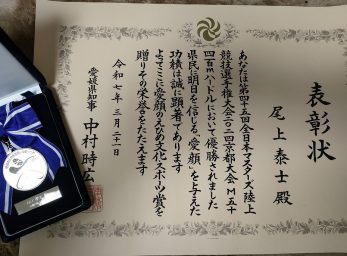 表彰状
尾上泰士殿
あなたは第四十五回全日本マスターズ陸上
競技選手権大会二〇二四京都大会M五十
四百mハードルにおいて優勝されました
県民に明日を信じる、愛顔を与えた
功績は誠に顕著であります
よってここに愛顔のえひめ文化・スポーツ賞を
贈りその栄誉をたたえます
令和七年三月二十一日
愛媛県知事 中村時広